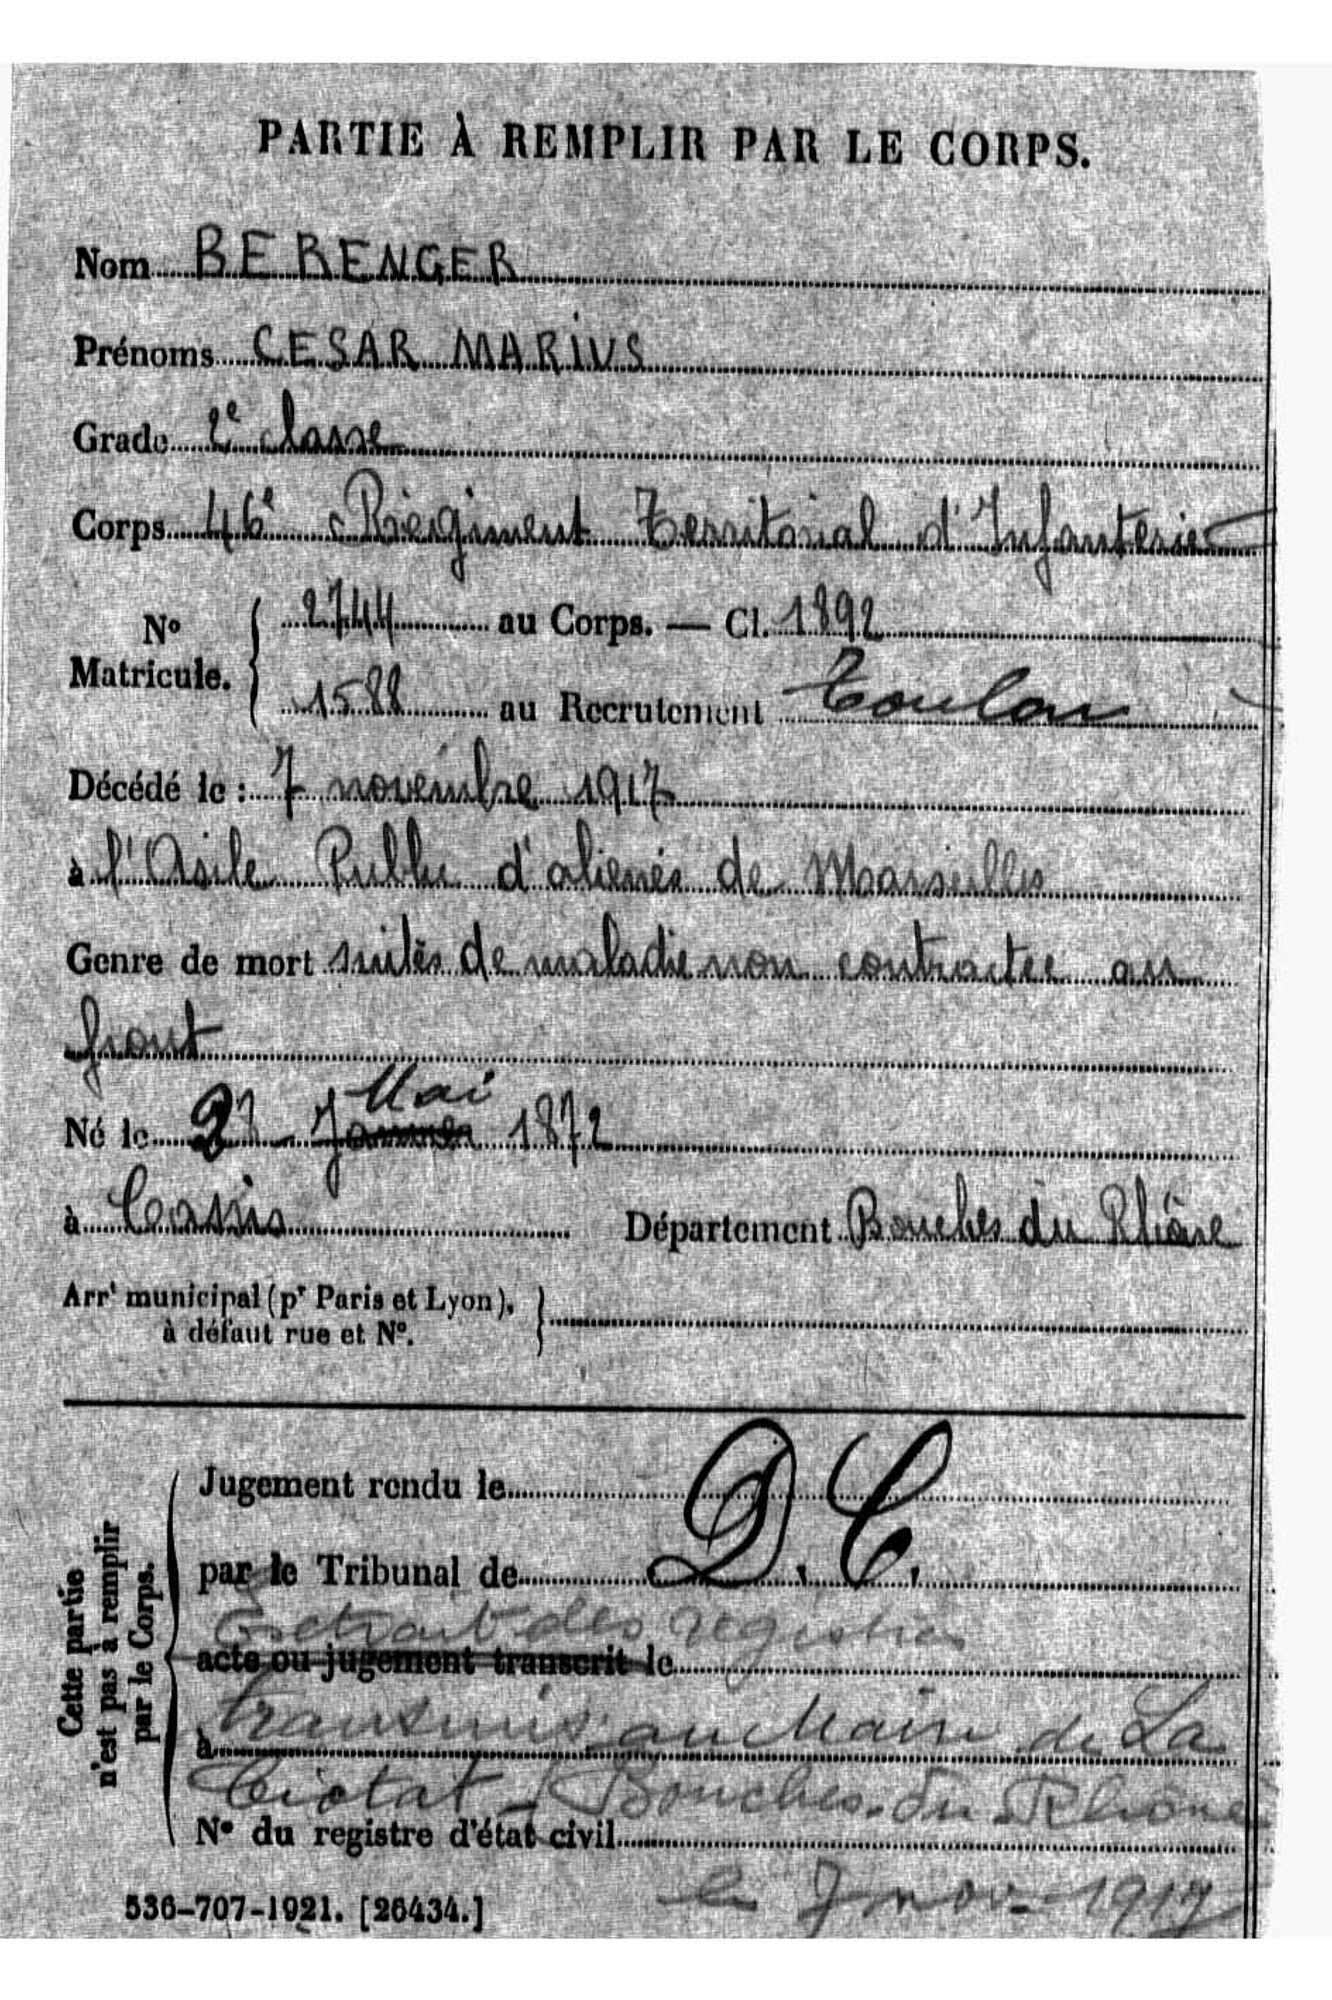 PARTIE À REMPLIR PAR LE CORPS.
Nom BERENGER
Prénoms CESAR MARIUS
Grade 2e classe
Corps 46e Régiment Territorial d'Infanterie
No Matricule. { 2744 au Corps. — Cl. 1892
1588 au Recrutement Toulon
Décédé le : 7 novembre 1917
à l'Asile Public d'aliénés de Marseille
Genre de mort suites de maladie non contractée au
front
Mai
Né le 27 Janvier 1872
à Cassis Département Bouches du Rhône
Arrt municipal (pr Paris et Lyon),
à défaut rue et No.
Cette partie
n'est pas à remplir
par le Corps.
Jugement rendu le
D. C.
par le Tribunal de
Extrait des registres
acte ou jugement transcrit le
à transmis au Maire de La
Ciotat - Bouches-du-Rhône
No du registre d'état civil
le 7 nov. 1917
536-707-1921. [26434.]